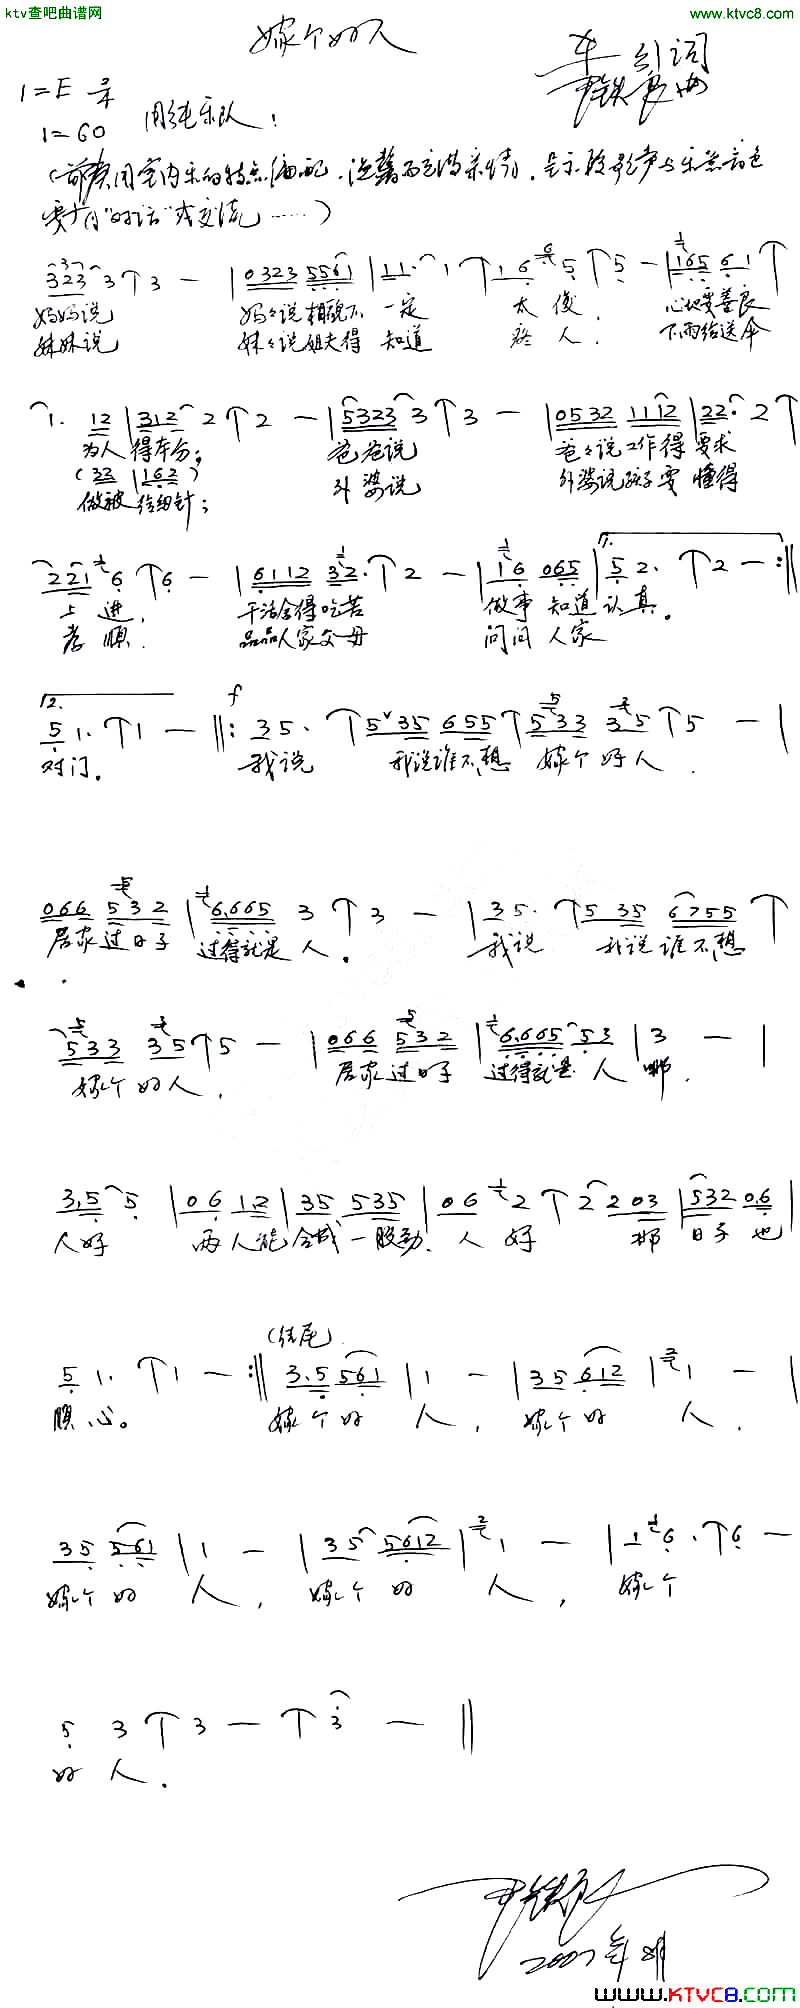 ktv查吧曲谱网
www.ktvc8.com
嫁个好人
词
尹铁良曲
1=E 2/4
1=60 用纯乐队!
要有"对话"或交流……)
323 3 3 — | 0323 5561 | 11· 1 16 5 5 — | 165 61
妈妈说 妈々说相貌不 一定 太 俊, 心地要善良
妹妹说 妹々说姐夫得 知道 疼 人, 下雨给送伞
1. 12 | 312 2 2 — | 5323 3 3 — | 0532 1112 | 22· 2
为人 得本分; 爸爸说 爸々说工作得 要求
(33 | 162) 外婆说 外婆说孩子要 懂得
做被 给纫针;
221 6 6 — | 6112 32· 2 — | 16 065 | 1. 5 2· 2 — :||
上 进, 干活舍得吃苦 做事 知道 认真。
孝 顺. 品品人家父母 问问 人家
2. 5 1· 1 — ||: f 35· 5 35 655 533 35 5 — |
对门。 我说 我说谁不想 嫁个 好人.
066 532 | 6.665 3 3 — | 35· 5 35 6755
居家过日子 过得就是 人。 我说 我说谁不想
533 35 5 — | 066 532 | 6.665 53 | 3 — |
嫁个 好人, 居家过日子 过得就是 人 哪.
3.5 5 | 06 1.2 | 35 535 | 06 2 2 2 03 | 532 0.6 |
人好 两人能合成一股劲. 人 好 那 日子 也
5 1· 1 — :|| (结尾) 3.5 561 | 1 — | 35 612 | 1 — |
顺心。 嫁个好 人, 嫁个好 人.
35 561 | 1 — | 35 5612 | 1 — | 1 6· 6 —
嫁个 好 人, 嫁个 好 人, 嫁个
5 3 3 — 3 — ||
好 人.
2007年
www.KTVC8.com